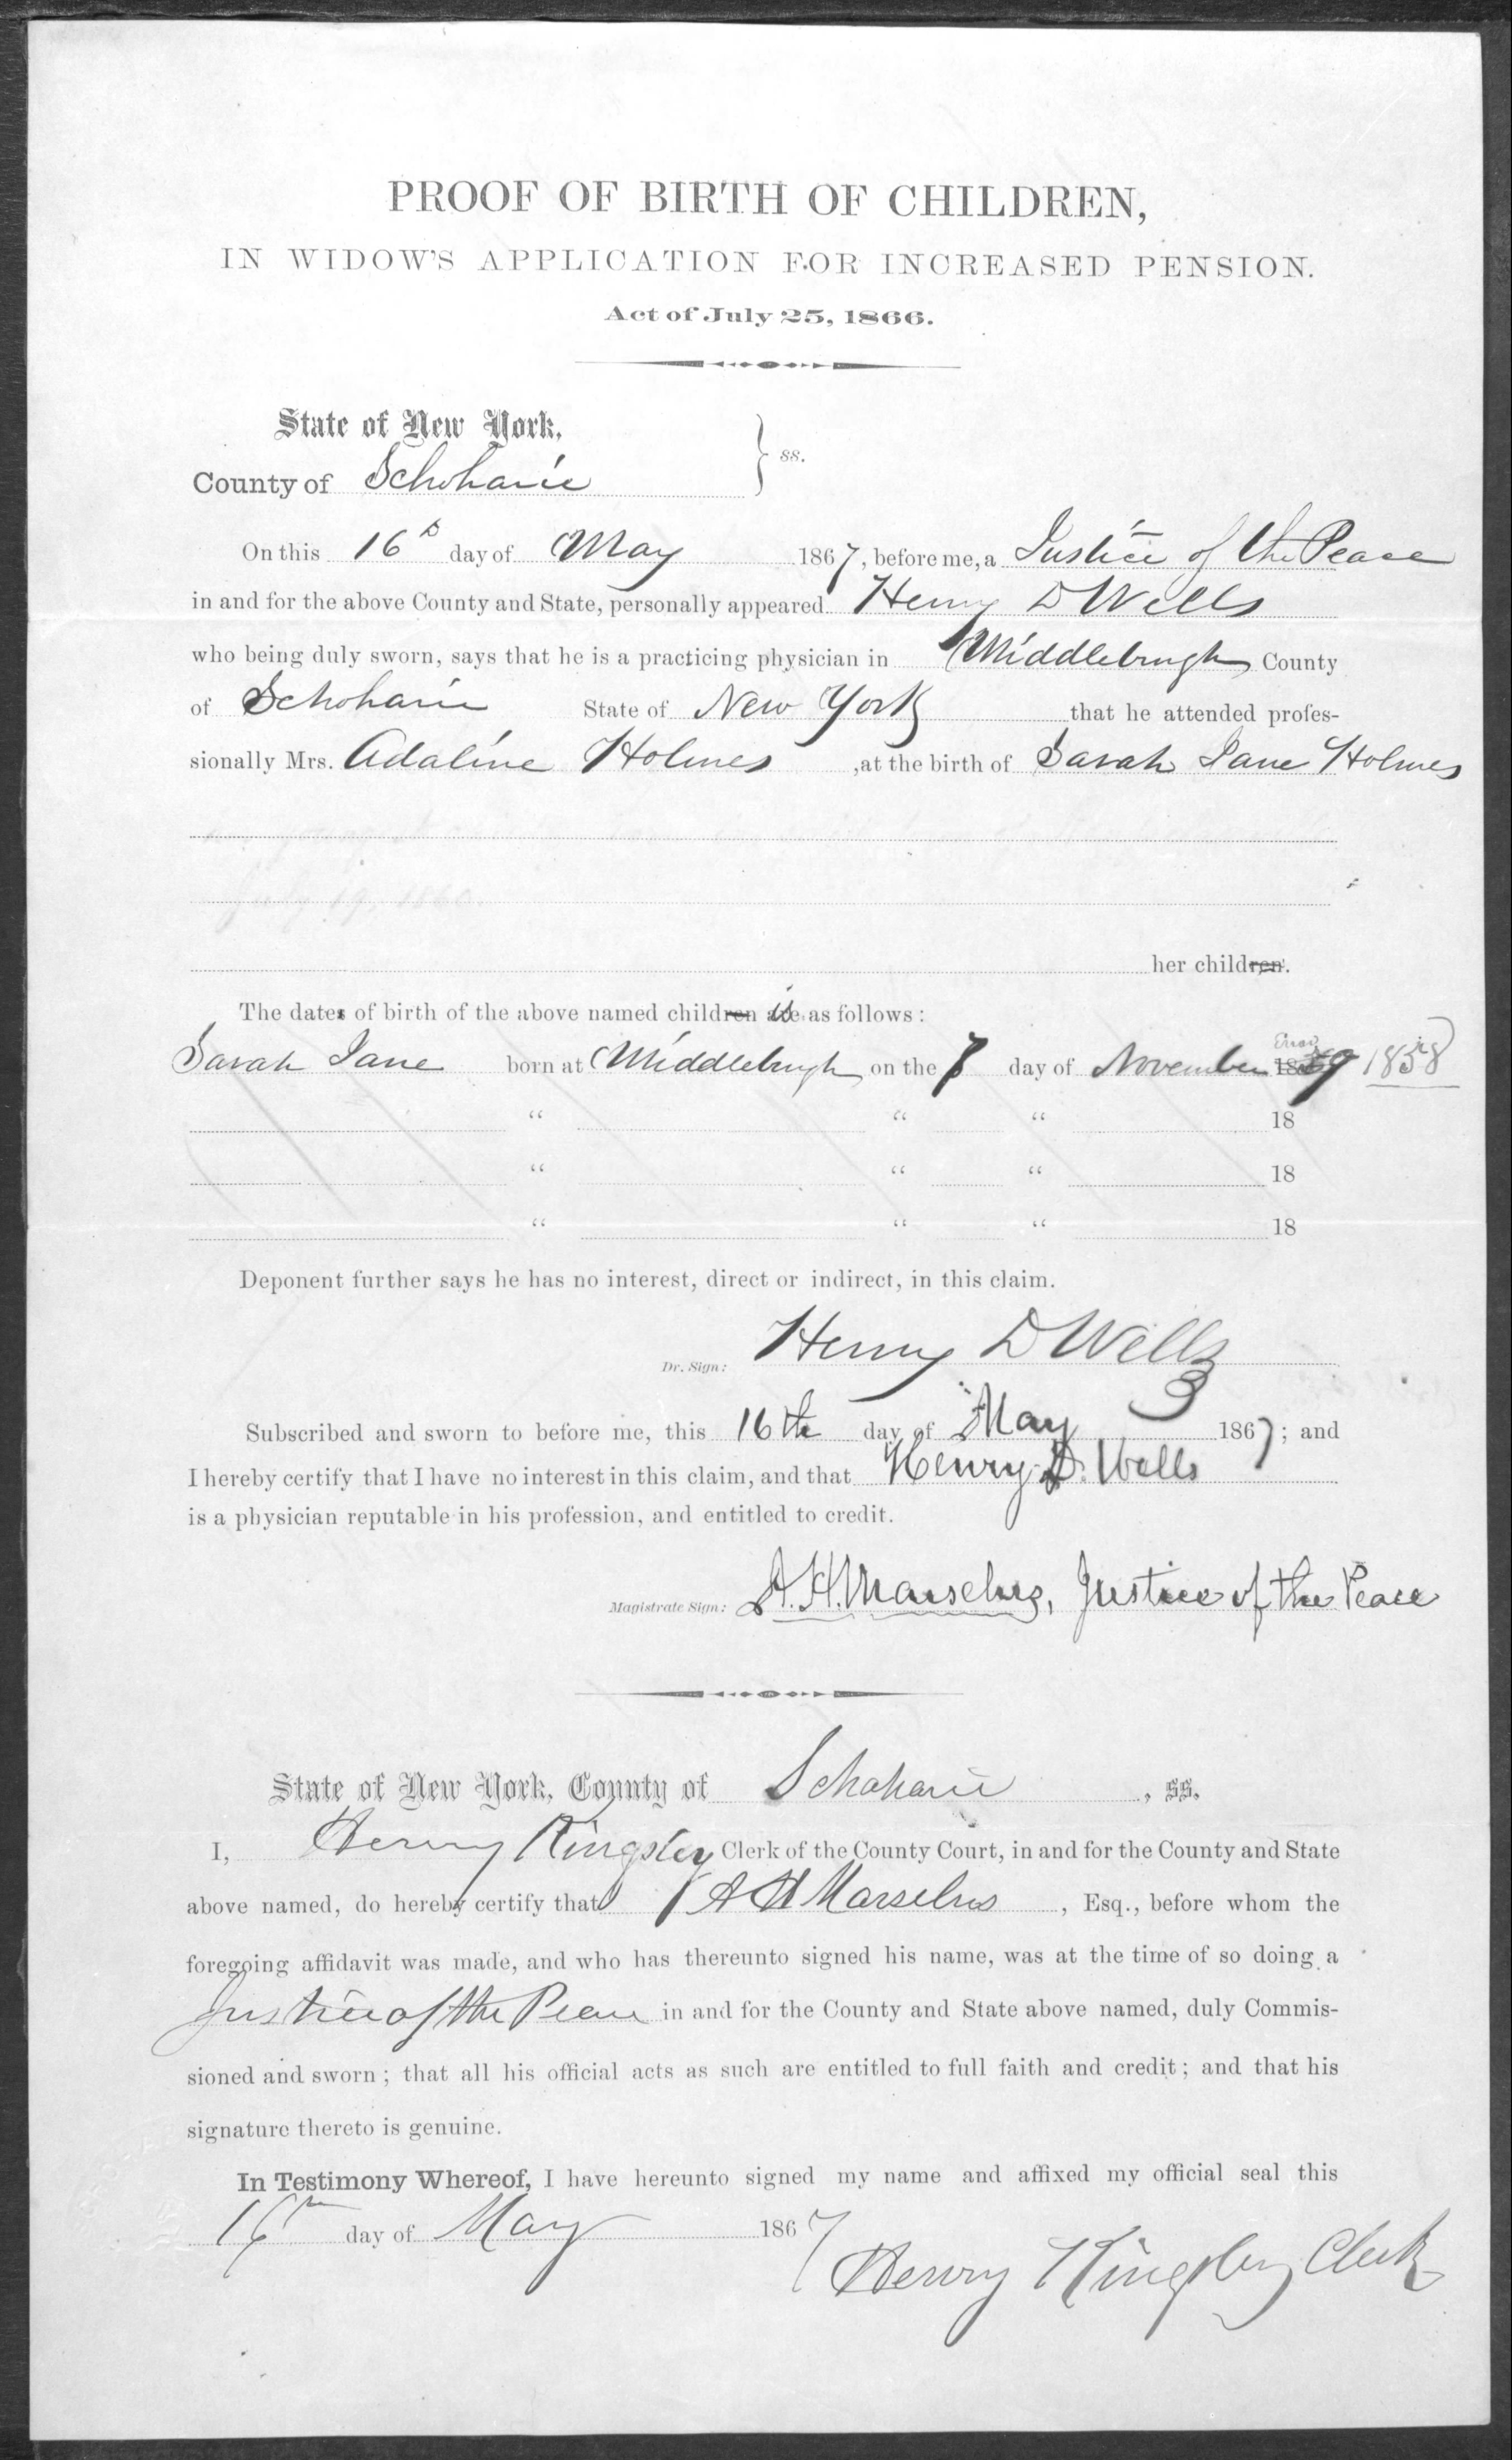 PROOF OF BIRTH OF CHILDREN,
IN WIDOW'S APPLICATION FOR INCREASED PENSION.
Act of July 25, 1866.
State of New York,
County of Schoharie } ss.
On this 16th day of May 1867, before me, a Justice of the Peace
in and for the above County and State, personally appeared Henry D Wells
who being duly sworn, says that he is a practicing physician in Middleburgh County
of Schoharie State of New York that he attended profes-
sionally Mrs. Adaline Holmes, at the birth of Sarah Jane Holmes
her children.
The dates of birth of the above named children are is as follows:
Error
Sarah Jane born at Middleburgh on the 7 day of November 1859 1858
" " " 18
" " " 18
" " " 18
Deponent further says he has no interest, direct or indirect, in this claim.
Dr. Sign: Henry D Wells
3
Subscribed and sworn to before me, this 16th day of May 1867; and
I hereby certify that I have no interest in this claim, and that Henry D. Wells
is a physician reputable in his profession, and entitled to credit.
Magistrate Sign: A. H. Marselus, Justice of the Peace
State of New York, County of Schoharie, ss.
I, Henry Kingsley Clerk of the County Court, in and for the County and State
above named, do hereby certify that A H Marselus, Esq., before whom the
foregoing affidavit was made, and who has thereunto signed his name, was at the time of so doing a
Justice of the Peace in and for the County and State above named, duly Commis-
sioned and sworn; that all his official acts as such are entitled to full faith and credit; and that his
signature thereto is genuine.
In Testimony Whereof, I have hereunto signed my name and affixed my official seal this
16th day of May 1867
Henry Kingsley Clerk